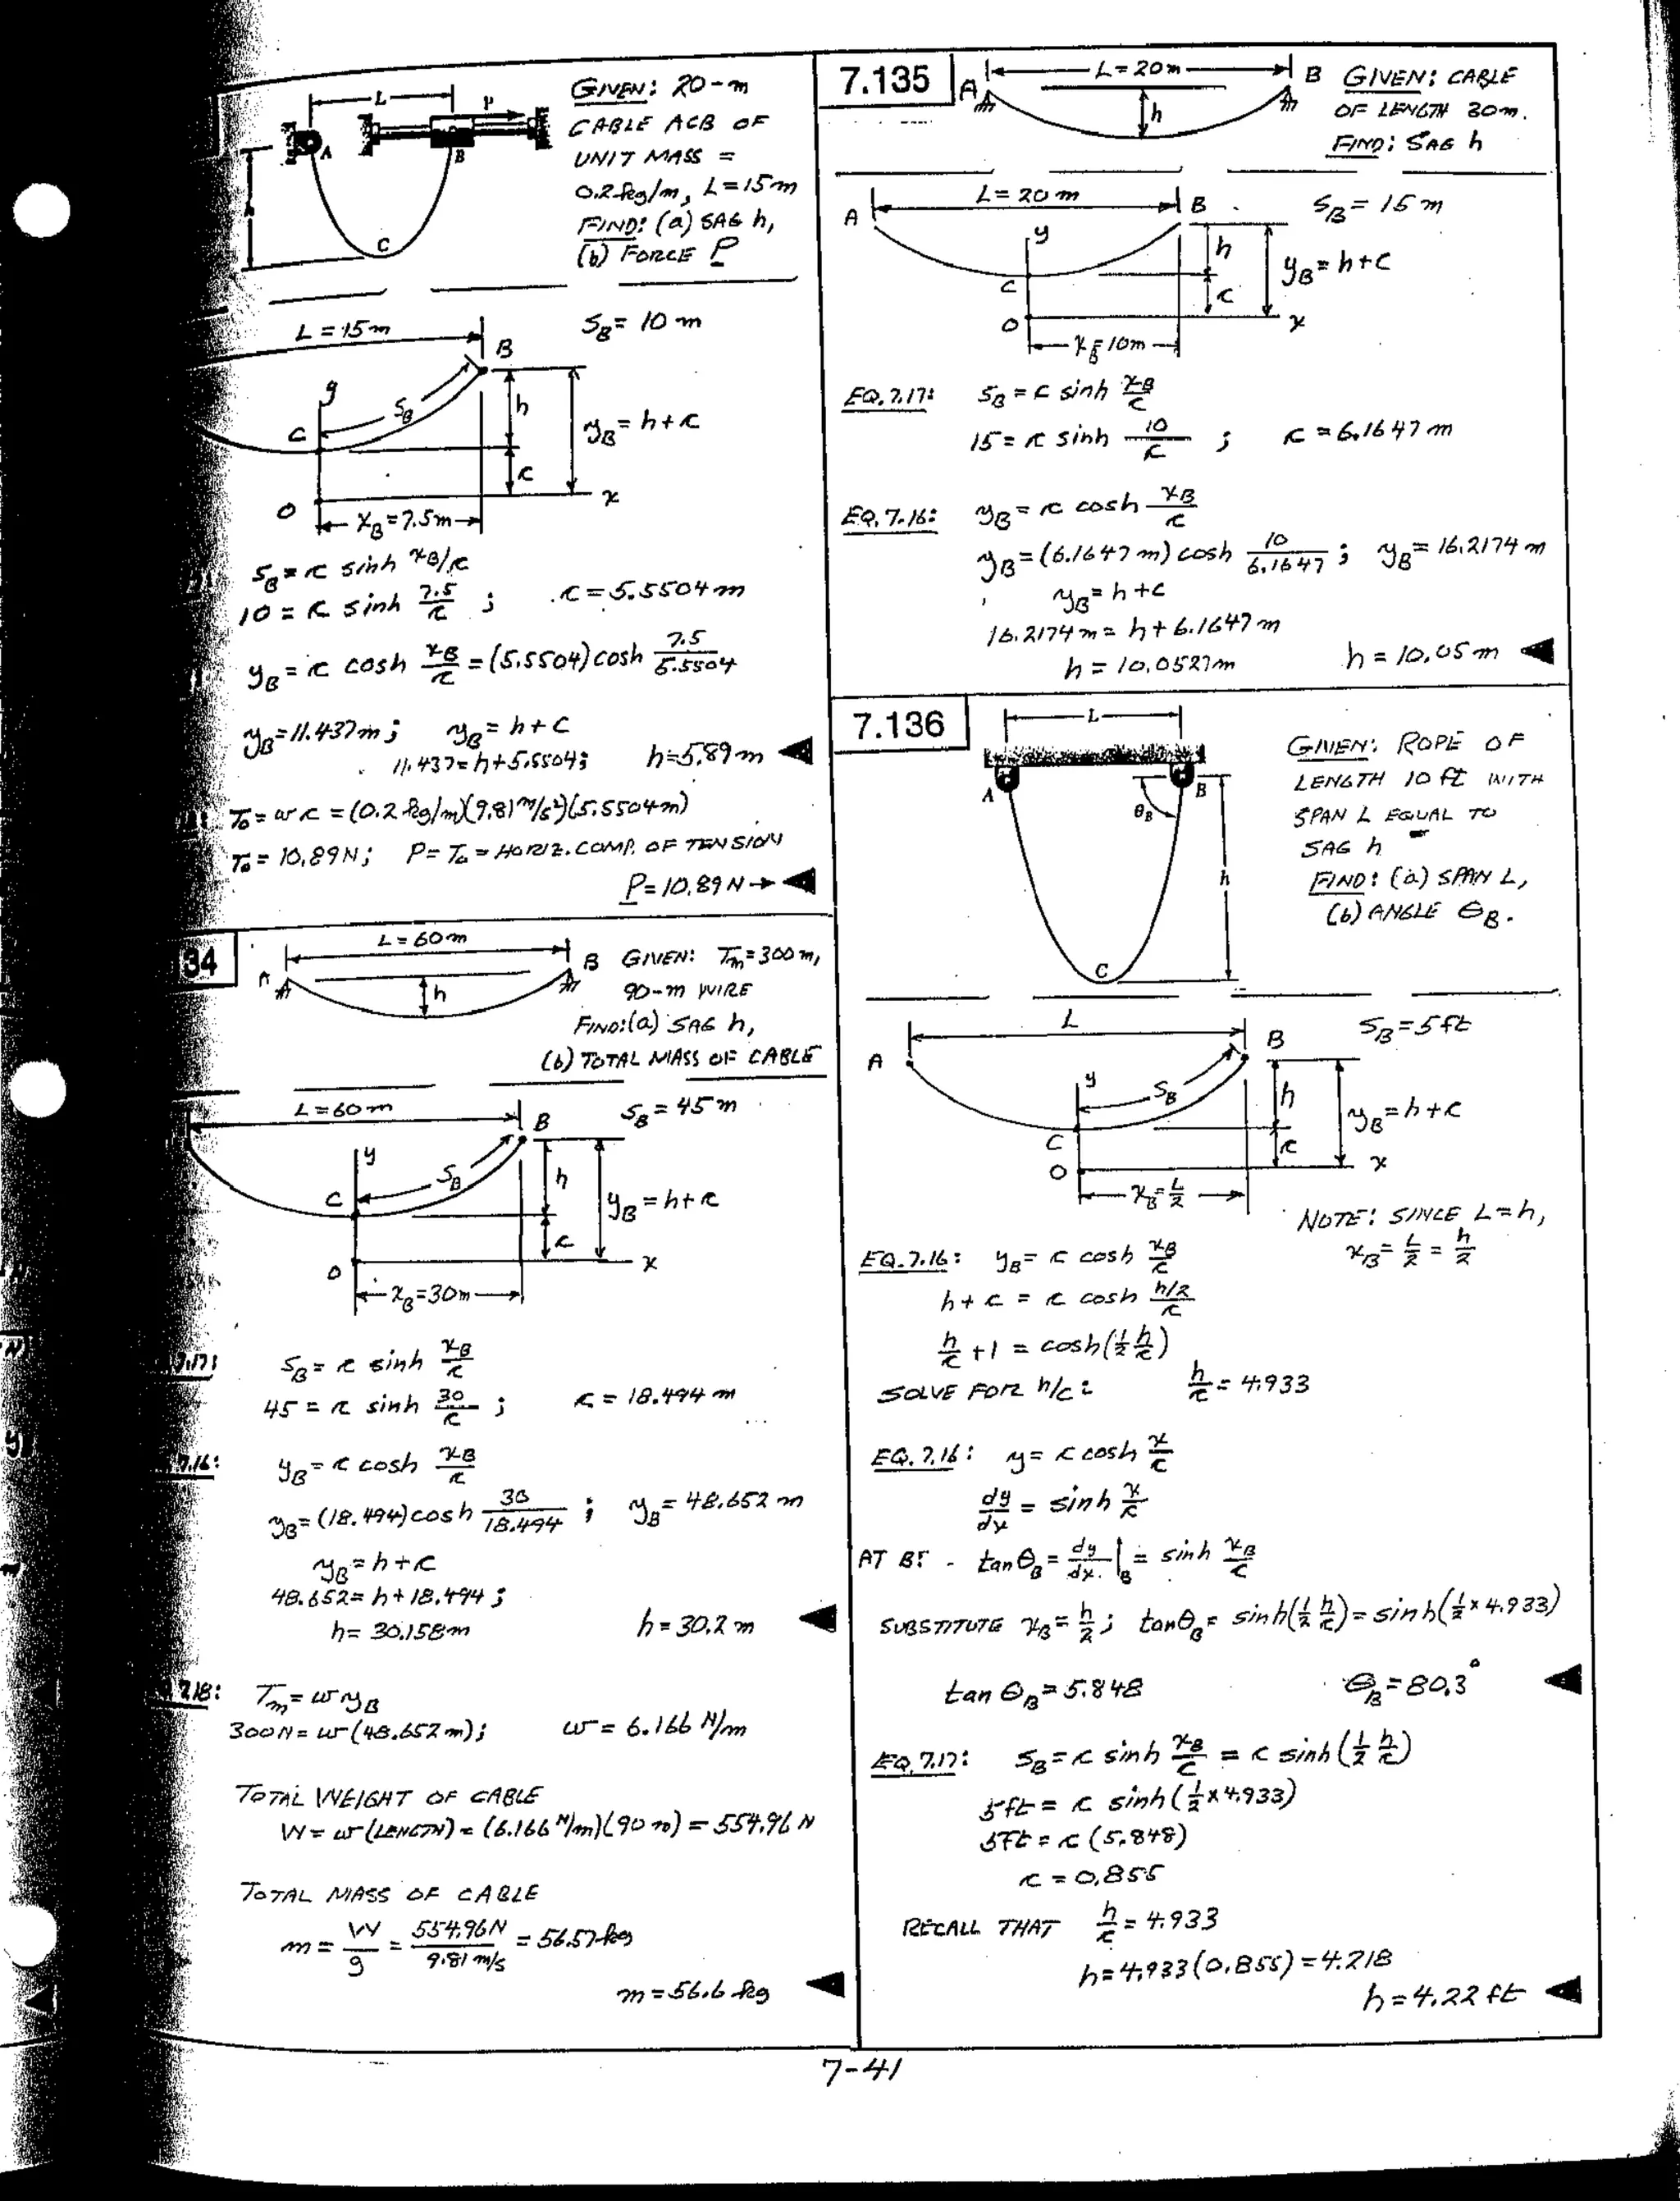 GIVEN: 20-m
CABLE ACB OF
UNIT MASS =
0.2 kg/m, L=15m
FIND: (a) SAG h,
(b) FORCE P
L
P
A
B
C
L = 15m
S_B = 10 m
B
y
S_B
h
y_B = h+c
C
c
O
x_B = 7.5m
x
S_B = c sinh x_B/c
10 = c sinh 7.5/c ; c = 5.5504 m
y_B = c cosh x_B/c = (5.5504) cosh 7.5/5.5504
y_B = 11.437 m; y_B = h + c
11.437 = h + 5.5504; h = 5.89 m ◀
T_0 = wc = (0.2 kg/m)(9.81 m/s²)(5.5504 m)
T_0 = 10.89 N; P = T_0 = HORIZ. COMP. OF TENSION
P = 10.89 N → ◀
34
L = 60m
A
B
h
GIVEN: T_m = 300 m,
90-m WIRE
FIND: (a) SAG h,
(b) TOTAL MASS OF CABLE
L = 60 m
S_B = 45 m
B
y
S_B
h
y_B = h+c
C
c
O
x
x_B = 30m
7.17: S_B = c sinh x_B/c
45 = c sinh 30/c ; c = 18.494 m
7.16: y_B = c cosh x_B/c
y_B = (18.494) cosh 30/18.494 ; y_B = 48.652 m
y_B = h + c
48.652 = h + 18.494 ;
h = 30.158 m h = 30.2 m ◀
7.18: T_m = w y_B
300 N = w (48.652 m); w = 6.166 N/m
TOTAL WEIGHT OF CABLE
W = w (LENGTH) = (6.166 N/m)(90 m) = 554.96 N
TOTAL MASS OF CABLE
m = W/g = 554.96N/9.81 m/s = 56.57 kg
m = 56.6 kg ◀
7.135
A
L = 20m
B
h
GIVEN: CABLE
OF LENGTH 30m.
FIND: SAG h
L = 20 m
A
B
S_B = 15 m
y
h
y_B = h+c
C
c
O
x
x_B = 10m
EQ. 7.17: S_B = c sinh x_B/c
15 = c sinh 10/c ; c = 6.1647 m
EQ. 7.16: y_B = c cosh x_B/c
y_B = (6.1647 m) cosh 10/6.1647 ; y_B = 16.2174 m
y_B = h + c
16.2174 m = h + 6.1647 m
h = 10.0527 m h = 10.05 m ◀
7.136
L
A
B
θ_B
h
C
GIVEN: ROPE OF
LENGTH 10 ft WITH
SPAN L EQUAL TO
SAG h
FIND: (a) SPAN L,
(b) ANGLE θ_B.
L
A
B
S_B = 5 ft
y
S_B
h
y_B = h + c
C
c
O
x
x_B = L/2
NOTE: SINCE L = h,
x_B = L/2 = h/2
EQ. 7.16: y_B = c cosh x_B/c
h + c = c cosh h/2/c
h/c + 1 = cosh(1/2 h/c)
SOLVE FOR h/c: h/c = 4.933
EQ. 7.16: y = c cosh x/c
dy/dx = sinh x/c
AT B: tan θ_B = dy/dx |_B = sinh x_B/c
SUBSTITUTE x_B = h/2 ; tan θ_B = sinh(1/2 h/c) = sinh(1/2 × 4.933)
tan θ_B = 5.848 θ_B = 80.3° ◀
EQ. 7.17: S_B = c sinh x_B/c = c sinh(1/2 h/c)
5 ft = c sinh(1/2 × 4.933)
5 ft = c (5.848)
c = 0.855
RECALL THAT h/c = 4.933
h = 4.933 (0.855) = 4.218
h = 4.22 ft ◀
7-41